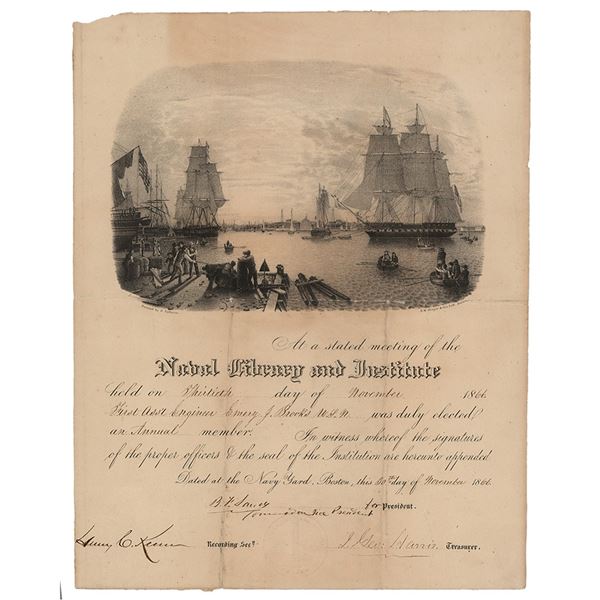 At a stated meeting of the
Naval Library and Institute
held on Thirtieth day of November 1866
First Asst Engineer Emery J. Brooks U.S.N. was duly elected
an Annual member. In witness whereof the signatures
of the proper officers & the seal of the Institution are hereunto appended
Dated at the Navy Yard, Boston, this 30th day of November 1866.
for President.
Vice President
Henry C. Recording Secy. Harris Treasurer.